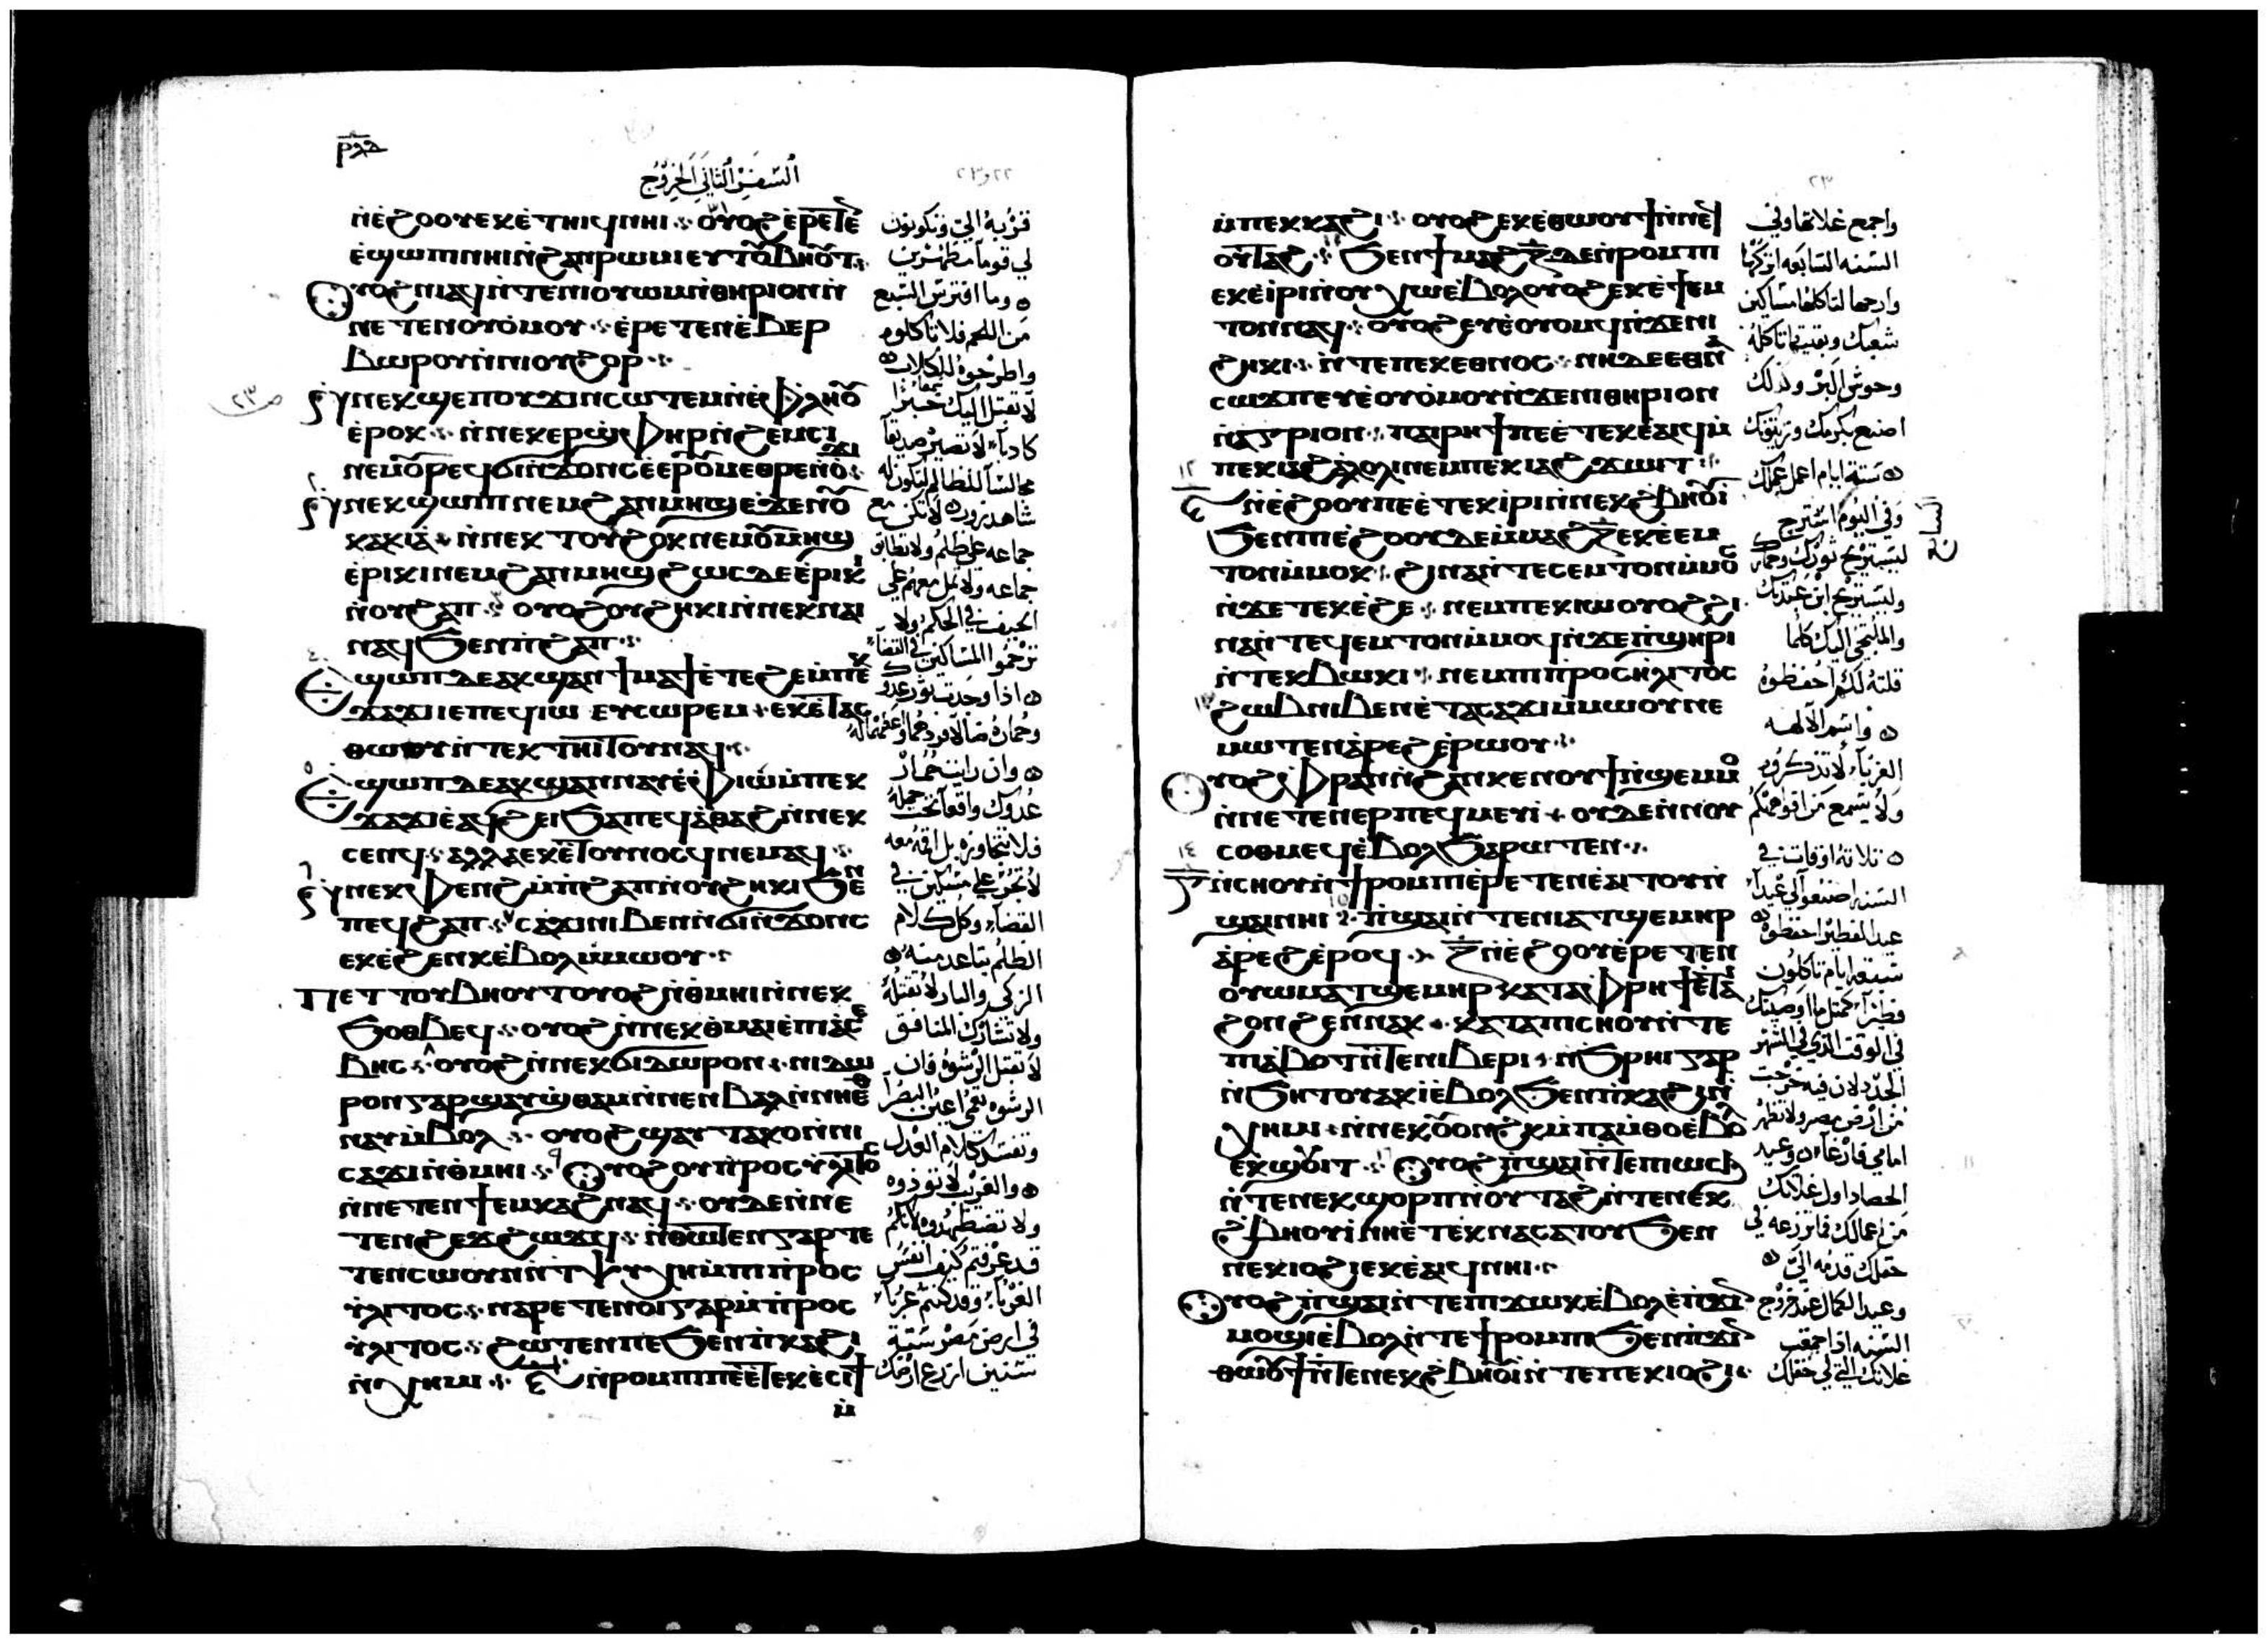 السفر الثاني الخروج
ⲛ̀ⲉ̀ϩⲟⲟⲩ ⲉⲕⲉ̀ⲧⲏⲓϥ ⲛⲏⲓ ⲟⲩⲟϩ ⲉ̀ⲣⲉⲧⲉ
ⲉ̀ϣⲱⲡⲓ ⲛⲏⲓ ⲛ̀ϩⲁⲛⲣⲱⲙⲓ ⲉⲩⲧⲟⲩⲃⲏⲟⲩⲧ
ⲟⲩⲟϩ ⲛⲓⲁϥ ⲛ̀ⲧⲉ ⲛⲓⲟⲩⲱⲙ ⲛ̀ⲑⲏⲣⲓⲟⲛ ⲛ̀
ⲛⲉⲧⲉⲛⲟⲩⲟ̀ⲙⲟⲩ ⲉ̀ⲣⲉⲧⲉⲛⲉ̀ⲃⲉⲣ
ⲃⲱⲣⲟⲩ ⲛ̀ⲛⲓⲟⲩϩⲟⲣ
ⲛ̀ⲛⲉⲕϣⲉⲡ ⲟⲩϫⲓⲛⲥⲱⲧⲉⲙ ⲛ̀ⲉ̀ⲫⲗⲏⲟⲩ
ⲉ̀ⲣⲟⲕ ⲛ̀ⲛⲉⲕⲉⲣϣ̀ⲫⲏⲣ ⲛ̀ϩⲉⲙⲥⲓ
ⲛⲉⲙ ⲟⲩⲣⲉϥϭⲓⲛ̀ϫⲟⲛⲥ ⲉ̀ⲉⲣⲟⲩⲙⲉⲑⲣⲉ ⲛⲟⲩϫⲓ
ⲛ̀ⲛⲉⲕϣⲱⲡⲓ ⲛⲉⲙ ϩⲁⲛⲙⲏϣ ⲉ̀ϫⲉⲛ ⲟⲩ
ⲕⲁⲕⲓⲁ̀ ⲛ̀ⲛⲉⲕⲧⲟⲩϩⲟⲕ ⲛⲉⲙ ⲟⲩⲙⲏϣ
ⲉ̀ⲣⲓⲕⲓ ⲛⲉⲙ ϩⲁⲛⲙⲏϣ ϩⲱⲥⲇⲉ ⲉ̀ⲣⲓⲕⲓ
ⲛ̀ⲟⲩϩⲁⲡ ⲟⲩⲟϩ ⲟⲩϩⲏⲕⲓ ⲛ̀ⲛⲉⲕⲛⲁⲓ
ⲛⲁϥ ϧⲉⲛ ⲡ̀ϩⲁⲡ
ⲉϣⲱⲡ ⲇⲉ ⲁⲕϣⲁⲛϯⲙⲁϯ ⲉ̀ⲧⲉϩⲉ ⲙ̀ⲡⲉⲕ
ϫⲁϫⲓ ⲓⲉ ⲡⲉϥⲓⲱ ⲉⲩⲥⲱⲣⲉⲙ ⲉⲕⲉ̀ⲧⲁⲥ
ⲑⲱⲟⲩ ⲛ̀ⲧⲉⲕⲧⲏⲓⲧⲟⲩ ⲛⲁϥ
ⲉϣⲱⲡ ⲇⲉ ⲁⲕϣⲁⲛⲛⲁⲩ ⲉ̀ⲫⲓⲱ ⲙ̀ⲡⲉⲕ
ϫⲁϫⲓ ⲉ̀ⲁϥϩⲉⲓ ϧⲁ ⲡⲉϥⲁⲑⲁϩ ⲛ̀ⲛⲉⲕ
ⲥⲉⲛϥ ⲁⲗⲗⲁ ⲉⲕⲉ̀ⲧⲟⲩⲛⲟⲥϥ ⲛⲉⲙⲁϥ
ⲛ̀ⲛⲉⲕⲫⲉⲛϩ ⲙ̀ⲡ̀ϩⲁⲡ ⲛ̀ⲟⲩϩⲏⲕⲓ ϧⲉⲛ
ⲡⲉϥϩⲁⲡ ⲥⲁϫⲓ ⲛⲓⲃⲉⲛ ⲛ̀ϭⲓⲛ̀ϫⲟⲛⲥ
ⲉⲕⲉ̀ϩⲉⲛⲕ ⲉ̀ⲃⲟⲗ ⲙ̀ⲙⲱⲟⲩ
ⲡⲉⲧⲧⲟⲩⲃⲏⲟⲩⲧ ⲟⲩⲟϩ ⲛ̀ⲑⲙⲏⲓ ⲛ̀ⲛⲉⲕ
ϧⲟⲑⲃⲉϥ ⲟⲩⲟϩ ⲛ̀ⲛⲉⲕⲑ̀ⲙⲁⲓⲉ̀ ⲡⲓⲁⲥⲉ
ⲃⲏⲥ ⲟⲩⲟϩ ⲛ̀ⲛⲉⲕϭⲓⲇⲱⲣⲟⲛ ⲛⲓⲇⲱ
ⲣⲟⲛ ⲅⲁⲣ ϣⲁⲩⲑⲱⲙ ⲛ̀ⲛⲉⲛⲃⲁⲗ ⲛ̀ⲛⲏⲉⲑ
ⲛⲁⲩ ⲙ̀ⲃⲟⲗ ⲟⲩⲟϩ ϣⲁⲩⲧⲁⲕⲟ ⲛ̀ⲛⲓ
ⲥⲁϫⲓ ⲛ̀ⲑⲙⲏⲓ ⲟⲩⲟϩ ⲟⲩⲡ̀ⲣⲟⲥⲏⲗⲓⲧⲟⲥ
ⲛ̀ⲛⲉⲧⲉⲛϯⲉⲙⲕⲁϩ ⲛⲁϥ ⲟⲩⲇⲉ ⲛ̀ⲛⲉ
ⲧⲉⲛϩⲉϫϩⲱϫϥ ⲛ̀ⲑⲱⲧⲉⲛ ⲅⲁⲣ ⲧⲉ
ⲧⲉⲛⲥⲱⲟⲩⲛ ⲛ̀ⲧⲯⲩⲭⲏ ⲙ̀ⲡⲓⲡ̀ⲣⲟⲥ
ⲏ̀ⲗⲓⲧⲟⲥ ⲛⲁⲣⲉⲧⲉⲛⲟⲓ ⲅⲁⲣ ⲙ̀ⲡ̀ⲣⲟⲥ
ⲏ̀ⲗⲓⲧⲟⲥ ϩⲱⲧⲉⲛ ⲡⲉ ϧⲉⲛ ⲡ̀ⲕⲁϩⲓ
ⲛ̀ⲭⲏⲙⲓ ⲛ̀ⲣⲟⲙⲡⲓ ⲡⲉ ⲉ̀ⲧⲉⲕⲉ̀ⲥⲓϯ
ⲙ̀
قربه الي وتكونون
لي قوما مطهرين
وما افترس السبع
من اللحم فلا تاكلوه
واطرحوه للكلاب
لا تقبل اليك خبرا
كاذبا لا تصير صديقا
مجالسا للظالم لتكون له
شاهد زور لا تكن مع
جماعه على ظلم ولا تطابق
جماعه ولا تمل معهم على
الحيف في الحكم ولا
ترحموا المساكين في القضا
اذا وجدت ثور عدوك
وحماره ضالا فردهما واعطهما له
وان رايت حمار
عدوك واقعا تحت حمله
فلا تتجاوزه بل اقمه معه
لا تجر على مسكين في
القضاء وكل كلام
الظلم تباعد منه
الزكي والبار لا تقتله
ولا تشارك المنافق
لا تقبل الرشوه فان
الرشوه تعمي اعين البصرا
وتفسد كلام العدل
والغريب لا توذوه
ولا تضطهدوه لانكم
قد عرفتم كيف انفس
الغربا وقد كنتم غربا
في ارض مصر ستة
سنين ازرع ارضك
ⲙ̀ⲡⲉⲕⲕⲁϩⲓ ⲟⲩⲟϩ ⲉⲕⲉ̀ⲑⲱⲟⲩϯ ⲛ̀ⲛⲉϥ
ⲟⲩⲧⲁϩ ϧⲉⲛ ϯⲙⲁϩ ⲍ̅ ⲇⲉ ⲛ̀ⲣⲟⲙⲡⲓ
ⲉⲕⲉ̀ⲓⲣⲓ ⲛ̀ⲟⲩⲭⲱ ⲉ̀ⲃⲟⲗ ⲟⲩⲟϩ ⲉⲕⲉ̀ϯⲉⲙ
ⲧⲟⲛ ⲛⲁϥ ⲟⲩⲟϩ ⲉⲩⲉ̀ⲟⲩⲟⲙϥ ⲛ̀ϫⲉ ⲛⲓ
ϩⲏⲕⲓ ⲛ̀ⲧⲉ ⲡⲉⲕⲉⲑⲛⲟⲥ ⲛⲏ ⲇⲉ ⲉⲑⲛⲁ
ⲥⲱϫⲡ ⲉⲩⲉ̀ⲟⲩⲟ̀ⲙⲟⲩ ⲛ̀ϫⲉ ⲛⲓⲑⲏⲣⲓⲟⲛ
ⲛ̀ⲁⲅⲣⲓⲟⲛ ⲡⲁⲓⲣⲏϯ ⲡⲉ ⲉ̀ⲧⲉⲕⲉ̀ⲁⲓϥ ⲙ̀
ⲡⲉⲕⲓⲁϩⲁ̀ⲗⲟⲗⲓ ⲛⲉⲙ ⲡⲉⲕⲓⲁϩϫⲱⲓⲧ
ⲛ̀ⲉ̀ϩⲟⲟⲩ ⲡⲉ ⲉ̀ⲧⲉⲕⲓ̀ⲣⲓ ⲛ̀ⲛⲉⲕϩⲃⲏⲟⲩⲓ̀
ϧⲉⲛ ⲡⲓⲉ̀ϩⲟⲟⲩ ⲇⲉ ⲙ̀ⲙⲁϩ ⲍ̅ ⲉⲕⲉ̀ⲉⲙ
ⲧⲟⲛ ⲙ̀ⲙⲟⲕ ϩⲓⲛⲁ ⲛ̀ⲧⲉⲥⲉⲙⲧⲟⲛ ⲙ̀ⲙⲟⲥ
ⲛ̀ϫⲉ ⲧⲉⲕⲉ̀ϩⲉ ⲛⲉⲙ ⲡⲉⲕⲓⲱ ⲟⲩⲟϩ ϩⲓ
ⲛⲁ ⲛ̀ⲧⲉϥⲉⲙⲧⲟⲛ ⲙ̀ⲙⲟϥ ⲛ̀ϫⲉ ⲡ̀ϣⲏⲣⲓ
ⲛ̀ⲧⲉⲕⲃⲱⲕⲓ ⲛⲉⲙ ⲡⲓⲡ̀ⲣⲟⲥⲏ̀ⲗⲓⲧⲟⲥ
ϩⲱⲃ ⲛⲓⲃⲉⲛ ⲉ̀ⲧⲁⲥⲁϫⲓ ⲙ̀ⲙⲱⲟⲩ ⲛⲉ
ⲙⲱⲧⲉⲛ ⲁ̀ⲣⲉϩ ⲉ̀ⲣⲱⲟⲩ
ⲟⲩⲟϩ ⲫ̀ⲣⲁⲛ ⲛ̀ϩⲁⲛⲕⲉⲛⲟⲩϯ ⲛ̀ϣⲉⲙⲙⲟ
ⲛ̀ⲛⲉⲧⲉⲛⲉⲣⲡⲉϥⲙⲉⲩⲓ̀ ⲟⲩⲇⲉ ⲛ̀ⲛⲟⲩ
ⲥⲟⲑⲙⲉϥ ⲉ̀ⲃⲟⲗ ϧⲁ ⲣⲱⲧⲉⲛ
ⲛ̀ⲥⲏⲟⲩ ⲛ̀ϯⲣⲟⲙⲡⲓ ⲉ̀ⲣⲉⲧⲉⲛⲉ̀ⲁⲓⲧⲟⲩ ⲛ̀
ϣⲁⲓ ⲛⲏⲓ ⲡ̀ϣⲁⲓ ⲛ̀ⲧⲉ ⲛⲓⲁⲧϣⲉⲙⲏⲣ
ⲁ̀ⲣⲉϩ ⲉ̀ⲣⲟϥ ⲍ̅ ⲛ̀ⲉ̀ϩⲟⲟⲩ ⲉ̀ⲣⲉⲧⲉⲛ
ⲟⲩⲱⲙ ⲁⲧϣⲉⲙⲏⲣ ⲕⲁⲧⲁ ⲫ̀ⲣⲏϯ ⲉ̀ⲧⲁ
ϩⲟⲛϩⲉⲛ ⲛⲁⲕ ⲕⲁⲧⲁ ⲡⲓⲥⲏⲟⲩ ⲛ̀ⲧⲉ
ⲡⲓⲁ̀ⲃⲟⲧ ⲛ̀ⲧⲉ ⲛⲓⲃⲉⲣⲓ ⲛ̀ϧⲣⲏⲓ ⲅⲁⲣ
ⲛ̀ϧⲏⲧⲟⲩ ⲁⲕⲓ̀ ⲉ̀ⲃⲟⲗ ϧⲉⲛ ⲡ̀ⲕⲁϩⲓ ⲛ̀
ⲭⲏⲙⲓ ⲛ̀ⲛⲉⲕⲟⲩⲟⲛϩⲕ ⲙ̀ⲡⲁⲙ̀ⲑⲟ ⲉ̀ⲃⲟⲗ
ⲉⲕϣⲟⲩⲓⲧ ⲟⲩⲟϩ ⲡ̀ϣⲁⲓ ⲛ̀ⲧⲉ ⲡⲱⲥϧ
ⲛ̀ⲧⲉ ⲛⲉⲕϣⲟⲣⲡ ⲛ̀ⲟⲩⲧⲁϩ ⲛ̀ⲧⲉ ⲛⲉⲕ
ϩⲃⲏⲟⲩⲓ̀ ⲛⲏⲉ̀ⲧⲉⲕⲛⲁⲥⲁⲧⲟⲩ ϧⲉⲛ
ⲛⲉⲕⲓⲟϩⲓ ⲉⲕⲉ̀ⲁⲓϥ ⲛⲏⲓ
ⲟⲩⲟϩ ⲡ̀ϣⲁⲓ ⲛ̀ⲧⲉ ⲡⲓϫⲱⲕ ⲉ̀ⲃⲟⲗ ⲉ̀ⲡ̀ϫⲓⲛ
ⲙⲟϣⲓ ⲉ̀ⲃⲟⲗ ⲛ̀ⲧⲉ ϯⲣⲟⲙⲡⲓ ϧⲉⲛ ⲡ̀ϫⲓⲛ
ⲑⲱⲟⲩϯ ⲛ̀ⲧⲉ ⲛⲉⲕϩⲃⲏⲟⲩⲓ̀ ⲛ̀ⲧⲉ ⲡⲉⲕⲓⲟϩⲓ
واجمع غلاتها وفي
السنه السابعه اتركها
وارحها لتاكلها مساكين
شعبك وبقيتها تاكله
وحوش البر وكذلك
اصنع بكرمك وزيتونك
ستة ايام اعمل عملك
وفي اليوم استرح
ليستريح ثورك وحمارك
وليستريح ابن عبدتك
والملتجي اليك كلما
قلته لكم احفظوه
واسم الالهه
الغربا لا تذكروه
ولا يسمع من افواهكم
ثلاثة اوقات في
السنه اصنعوا لي عيدا
عيد الفطير احفظوه
سبعة ايام تاكلون
فطيرا كمثل ما اوصيتك
في الوقت الذي في الشهر
الجدد لان فيه خرجت
من ارض مصر ولا تظهر
امامي فارغا وعيد
الحصاد اول غلاتك
من اعمالك فما تزرعه في
حقلك قدمه الي
وعيد الكمال عند خروج
السنه اذا جمعت
غلاتك التي في حقلك